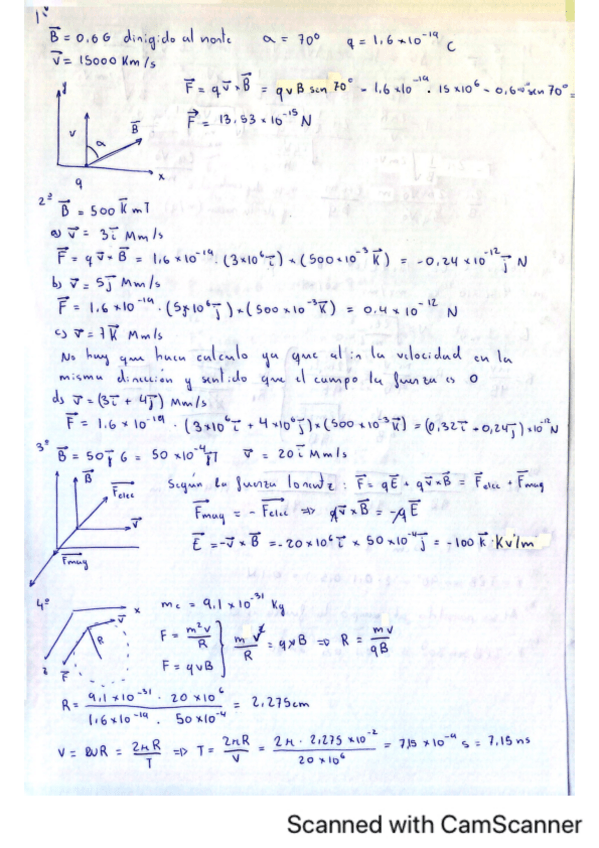 1º
B⃗ = 0,6 G dirigido al norte α = 70º q = 1,6 × 10⁻¹⁹ C
v⃗ = 15000 Km/s
F⃗ = q v⃗ × B⃗ = q v B sen 70º = 1,6 × 10⁻¹⁹ · 15 × 10⁶ sen 70º =
F⃗ = 13,53 × 10⁻¹⁵ N
y v α B⃗ x q
2º B⃗ = 500 k⃗ mT
a) v⃗ = 3i⃗ Mm/s
F⃗ = q v⃗ × B⃗ = 1,6 × 10⁻¹⁹ · (3×10⁶ i⃗) × (500×10⁻³ k⃗) = -0,24 × 10⁻¹² j⃗ N
b) v⃗ = 5j⃗ Mm/s
F⃗ = 1,6 × 10⁻¹⁹ · (5×10⁶ j⃗) × (500 × 10⁻³ k⃗) = 0,4 × 10⁻¹² N
c) v⃗ = 7k⃗ Mm/s
No hay que hacer calculo ya que al ir la velocidad en la
misma dirección y sentido que el campo la fuerza es 0
d) v⃗ = (3i⃗ + 4j⃗) Mm/s
F⃗ = 1,6 × 10⁻¹⁹ · (3×10⁶ i⃗ + 4×10⁶ j⃗) × (500 × 10⁻³ k⃗) = (0,32i⃗ + 0,24j⃗) × 10⁻¹² N
3º B⃗ = 50j⃗ G = 50 × 10⁻⁴ j⃗ T v⃗ = 20 i⃗ Mm/s
B⃗ F⃗elec v⃗ F⃗mag
Según la fuerza lorentz: F⃗ = qE⃗ + q v⃗ × B⃗ = F⃗elec + F⃗mag
F⃗mag = - F⃗elec ⇒ q v⃗ × B⃗ = -qE⃗
E⃗ = -v⃗ × B⃗ = -20×10⁶ i⃗ × 50×10⁻⁴ j⃗ = -100 k⃗ Kv/m
4º
x v⃗ R F⃗ z
mc = 9,1 × 10⁻³¹ Kg
F = m²v/R
F = q v B } m v²/R = q v B ⇒ R = mv/qB
R = 9,1 × 10⁻³¹ · 20 × 10⁶ / 1,6 × 10⁻¹⁹ · 50 × 10⁻⁴ = 2,275 cm
V = ωR = 2πR/T ⇒ T = 2πR/V = 2π · 2,275 × 10⁻² / 20 × 10⁶ = 7,15 × 10⁻⁹ s = 7,15 ns
Scanned with CamScanner